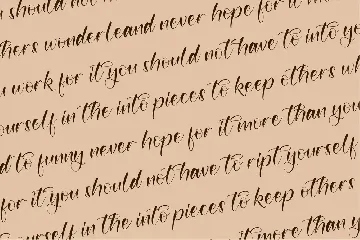 u should not
thers wonderleand never hope for it m
u work for it you should not have to into yo
ourself in the into pieces to keep others wh
d to funny never hope for it more than you
for it you should not have to ript yourself
ourself in the into pieces to keep others
it more than y